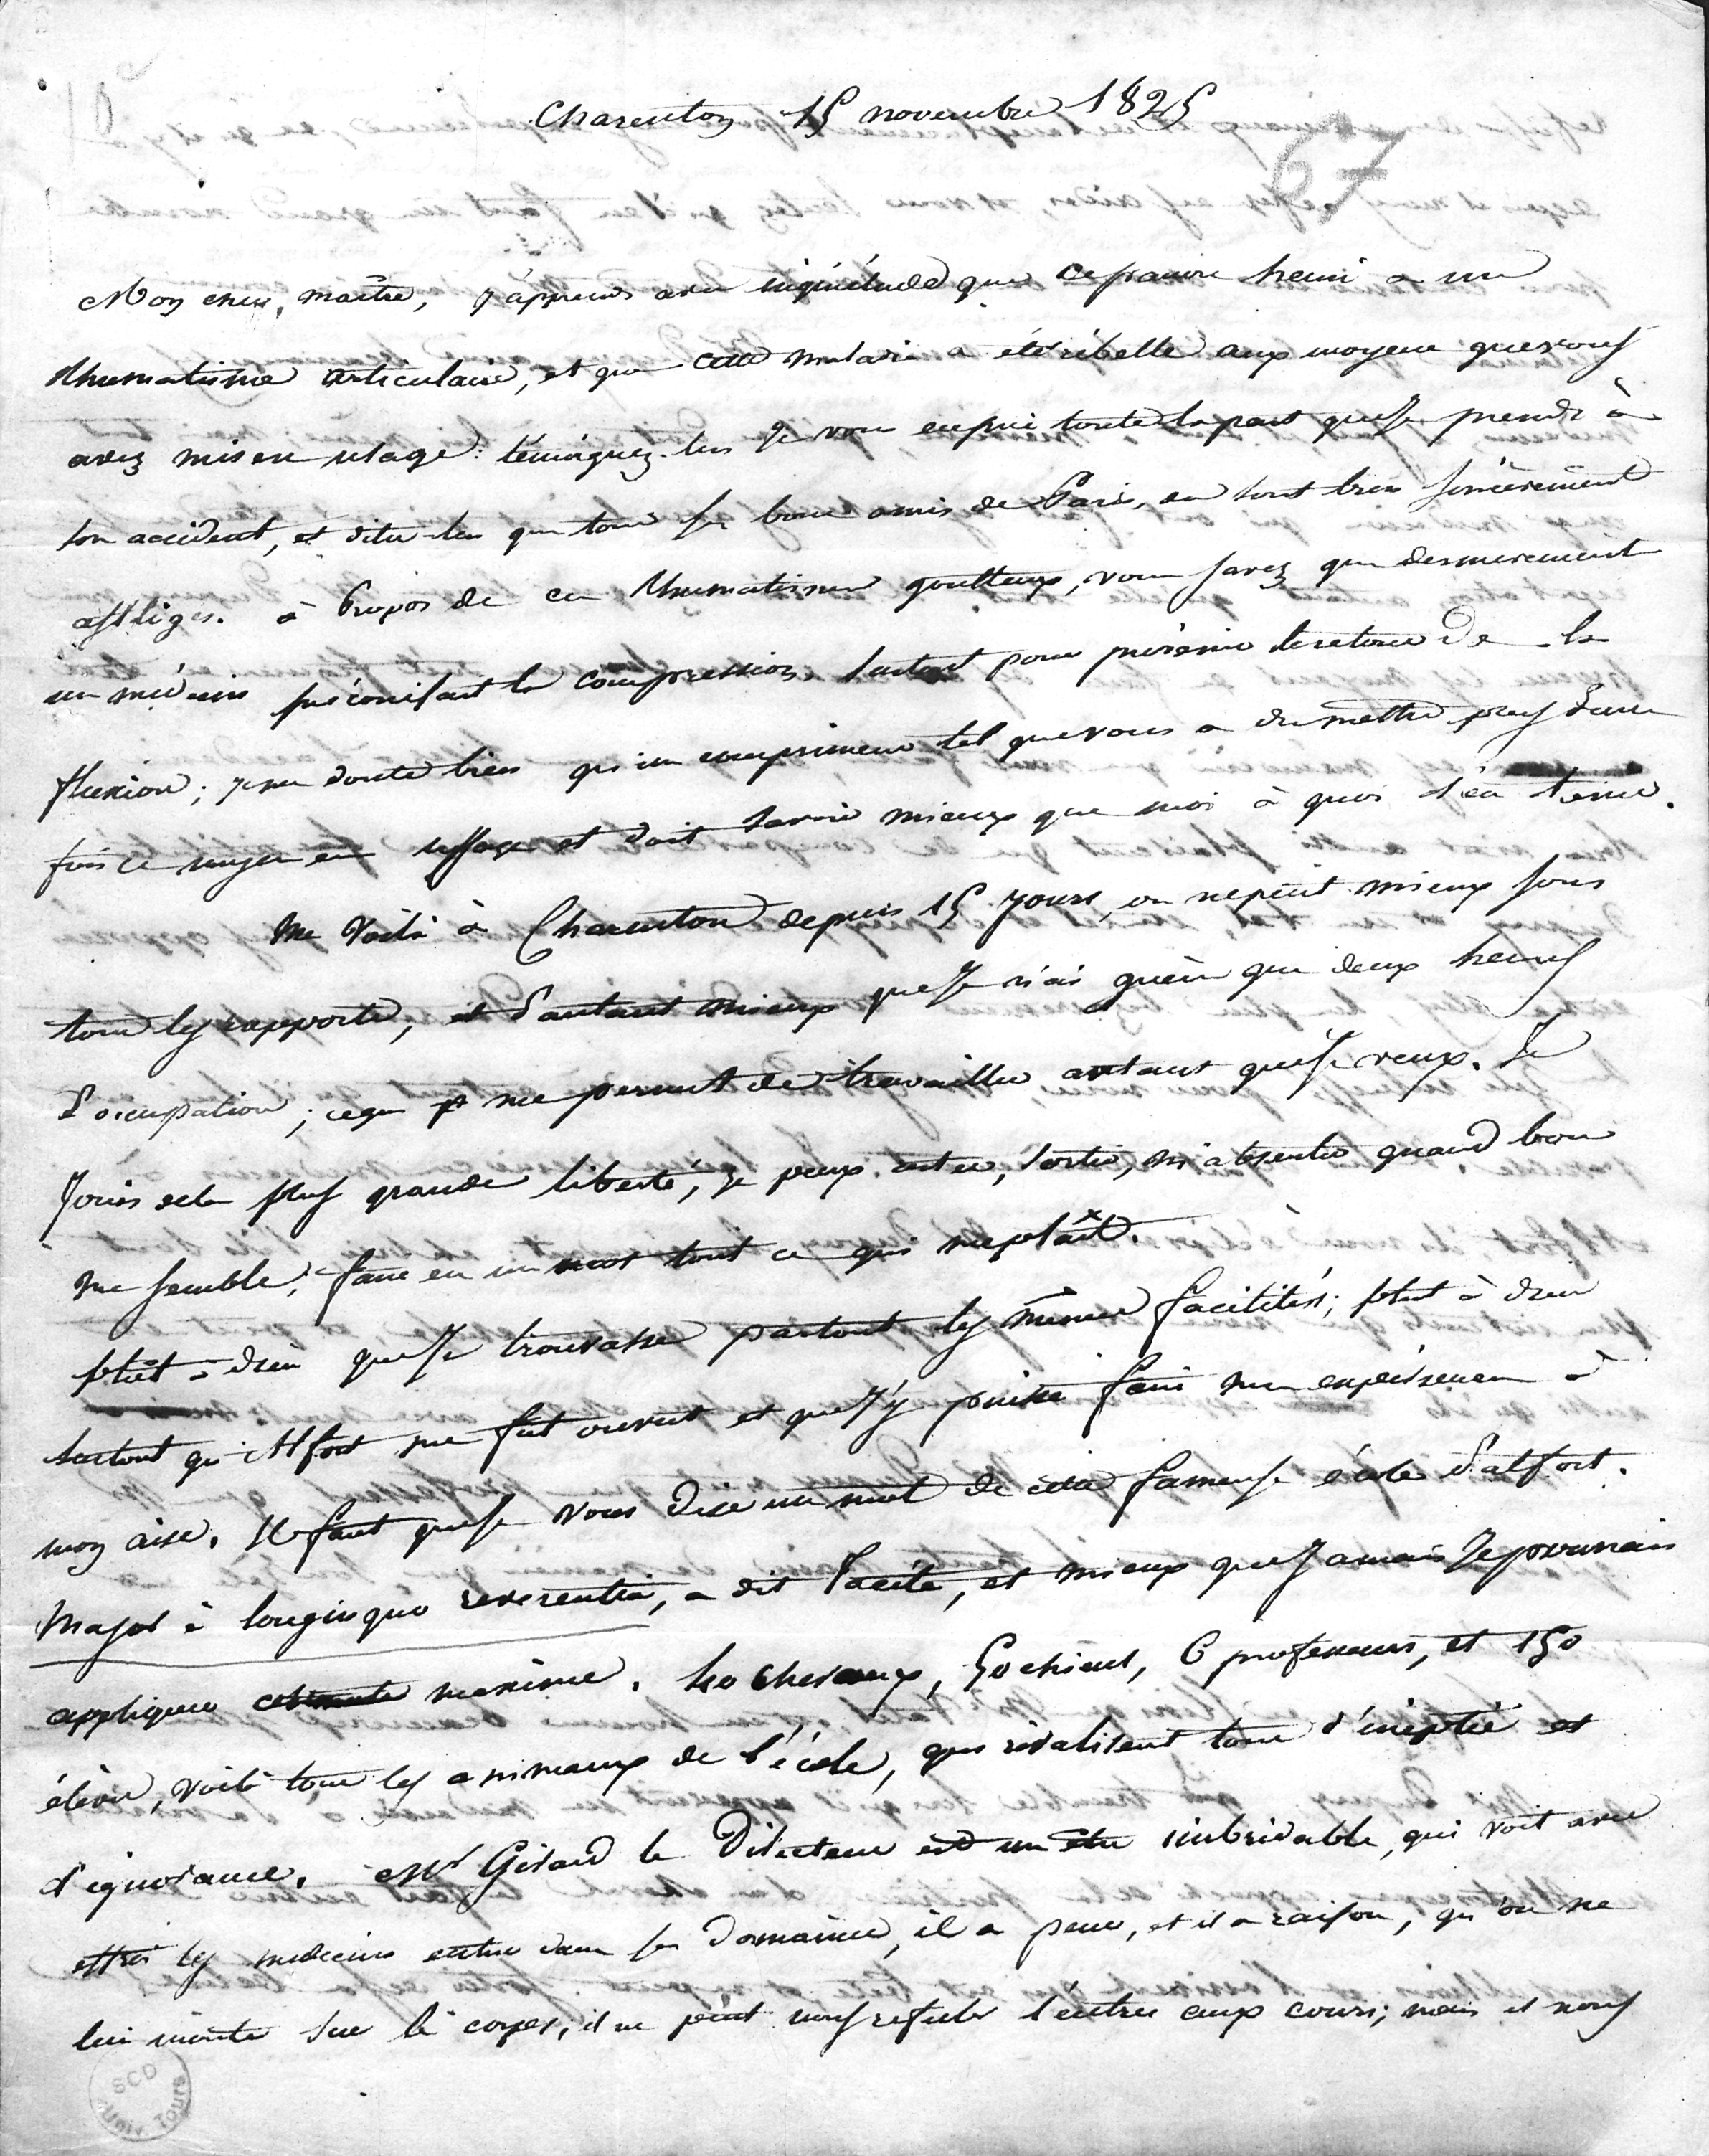 Charenton 15 novembre 1825
67
Mon cher maître, j'apprens avec inquiétude que ce pauvre henri a un
rhumatisme articulaire, et que cette maladie a été rébelle aux moyens que vous
avez mis en usage. témoignez-lui je vous en prie toute la part que je prends à
son accident, et dites-lui que tous ses bons amis de Paris, en sont bien sincèrement
affligés. à Propos de ce rhumatisme goutteux, vous savez que dernierement
un médecin préconisait la compression surtout pour prévenir le retour de la
fluxion; je me doute bien qu'un comprimeur tel que vous a du mettre plus d'une
fois ce moyen en usage et doit savoir mieux que moi à quoi s'en tenir.
Me Voilà à Charenton depuis 15 jours, on ne peut mieux sous
tous les rapports, et d'autant mieux que je n'ai guère que deux heures
d'occupation; ce qui me permet de travailler autant que je veux. Je
Jouis de la plus grande liberté, je peux rester, sortir, m'absenter quand bon
me semble, faire en un mot tout ce qui me plaît.
plut à dieu que je trouvasse partout les mêmes facilités; plut à dieu
surtout qu'Alfort me fut ouvert et que j'y puisse faire mes expériences à
mon aise. Il faut que je vous dise un mot de cette fameuse école d'alfort.
Major à longinquo reverentia, a dit Tacite, et mieux que jamais je pourrais
appliquer maxime. chevaux, 50 chiens, 6 professeurs, et 150
élèves, voilà tous les animaux de l'école, qui rivalisent tous d'ineptie et
d'ignorance. Mr Girard le Directeur est un être imbridable, qui voit avec
effroi les médecins entrer dans ses Domaines, il a peur, et il a raison, qu'on ne
lui monte sur le corps; il ne peut nous refuser l'entrée aux cours; mais il nous
SCD
Univ. Tours